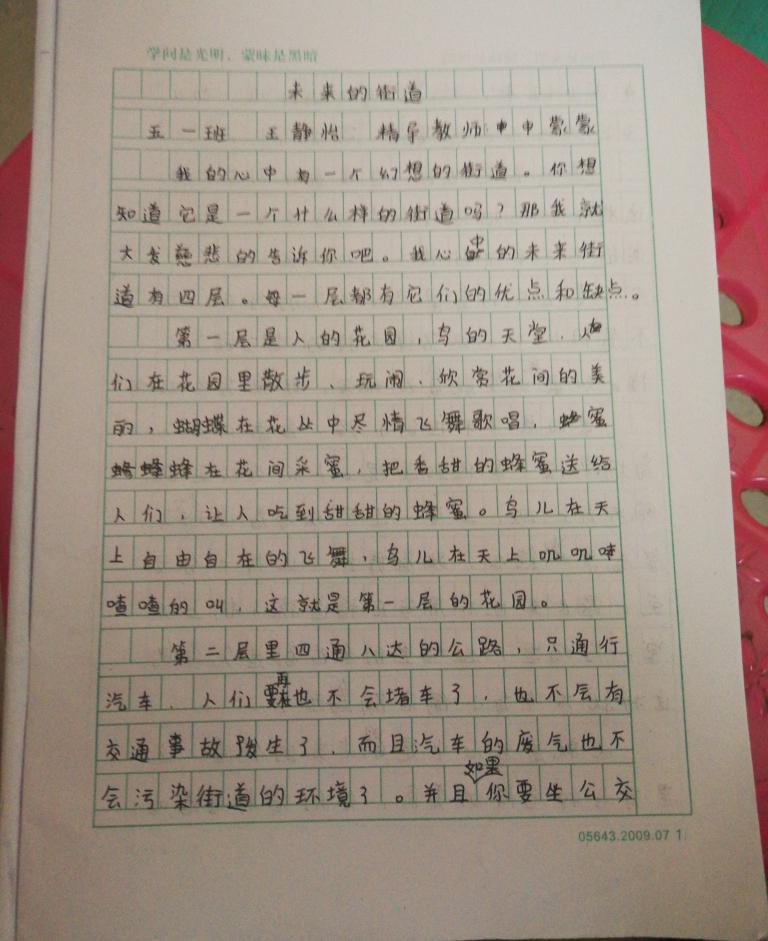 学问是光明，蒙昧是黑暗
未来的街道
五一班 王静怡 精导教师申申蒙蒙
我的心中有一个幻想的街道。你想
知道它是一个什么样的街道吗？那我就
大发慈悲的告诉你吧。我心中的未来街
道有四层。每一层都有它们的优点和缺点。
第一层是人的花园，鸟的天堂，人
们在花园里散步、玩闹、欣赏花间的美
丽，蝴蝶在花丛中尽情飞舞歌唱，蜜
蜂在花间采蜜，把香甜的蜂蜜送给
人们，让人吃到甜甜的蜂蜜。鸟儿在天
上自由自在的飞舞，鸟儿在天上叽叽喳
喳喳的叫，这就是第一层的花园。
第二层里四通八达的公路，只通行
汽车、人们再也不会堵车了，也不会有
交通事故发生了，而且汽车的废气也不
会污染街道的环境了。并且如果你要坐公交
05643.2009.07 1